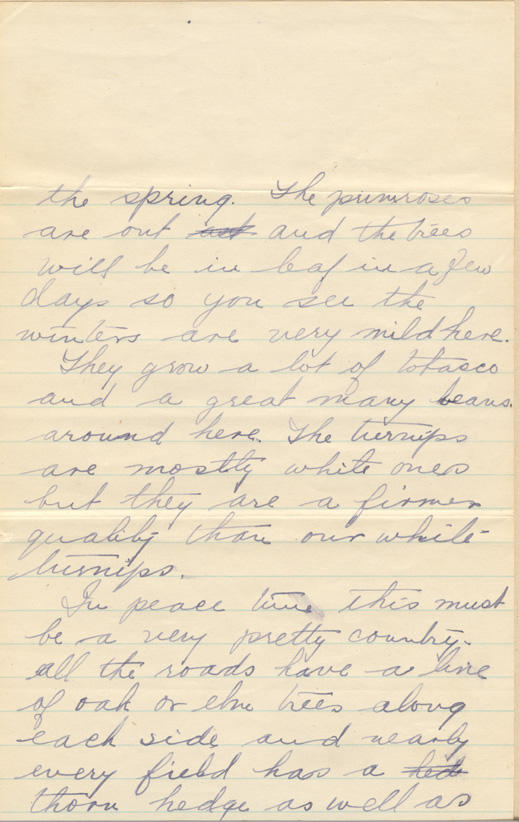 the spring. The primroses
are out and the trees
will be in leaf in a few
days so you see the
winters are very mild here.
They grow a lot of tobasco
and a great many beans
around here. The turnips
are mostly white ones
but they are a firmer
quality than our white
turnips.
In peace time this must
be a very pretty country.
all the roads have a line
of oak or elm trees along
each side and nearly
every field has a hed
thorn hedge as well as